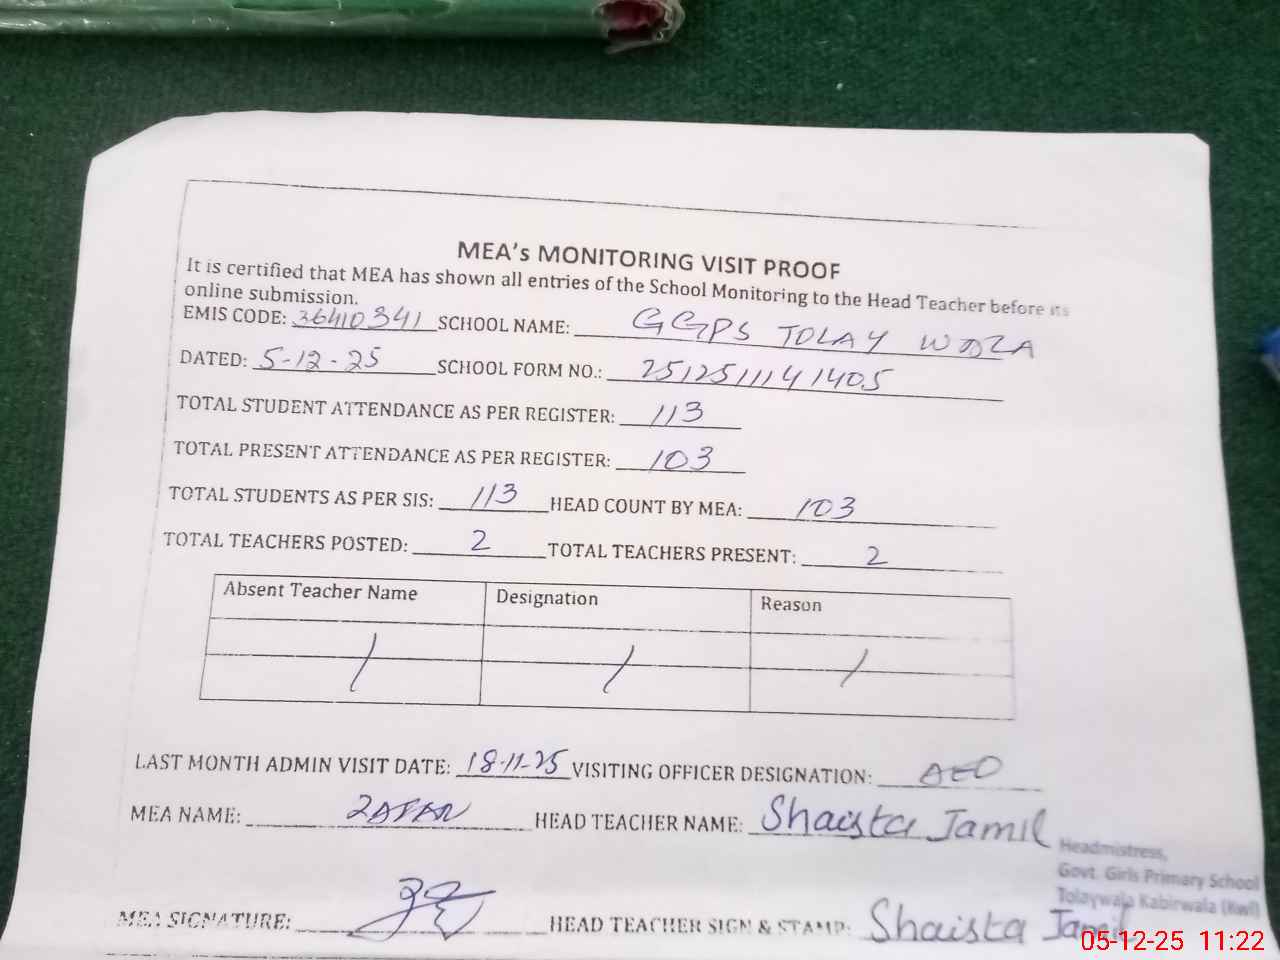 MEA's MONITORING VISIT PROOF
It is certified that MEA has shown all entries of the School Monitoring to the Head Teacher before its
online submission.
EMIS CODE: 36410341 SCHOOL NAME: GGPS TOLAY WALA
DATED: 5-12-25 SCHOOL FORM NO.: 2512511141405
TOTAL STUDENT ATTENDANCE AS PER REGISTER: 113
TOTAL PRESENT ATTENDANCE AS PER REGISTER: 103
TOTAL STUDENTS AS PER SIS: 113 HEAD COUNT BY MEA: 103
TOTAL TEACHERS POSTED: 2 TOTAL TEACHERS PRESENT: 2
Absent Teacher Name Designation Reason
/ / /
LAST MONTH ADMIN VISIT DATE: 18-11-25 VISITING OFFICER DESIGNATION: AEO
MEA NAME: ZAFAR HEAD TEACHER NAME: Shaista Jamil
Headmistress,
Govt. Girls Primary School
Tolaywala Kabirwala (Kwl)
MEA SIGNATURE: HEAD TEACHER SIGN & STAMP: Shaista Jamil
05-12-25 11:22